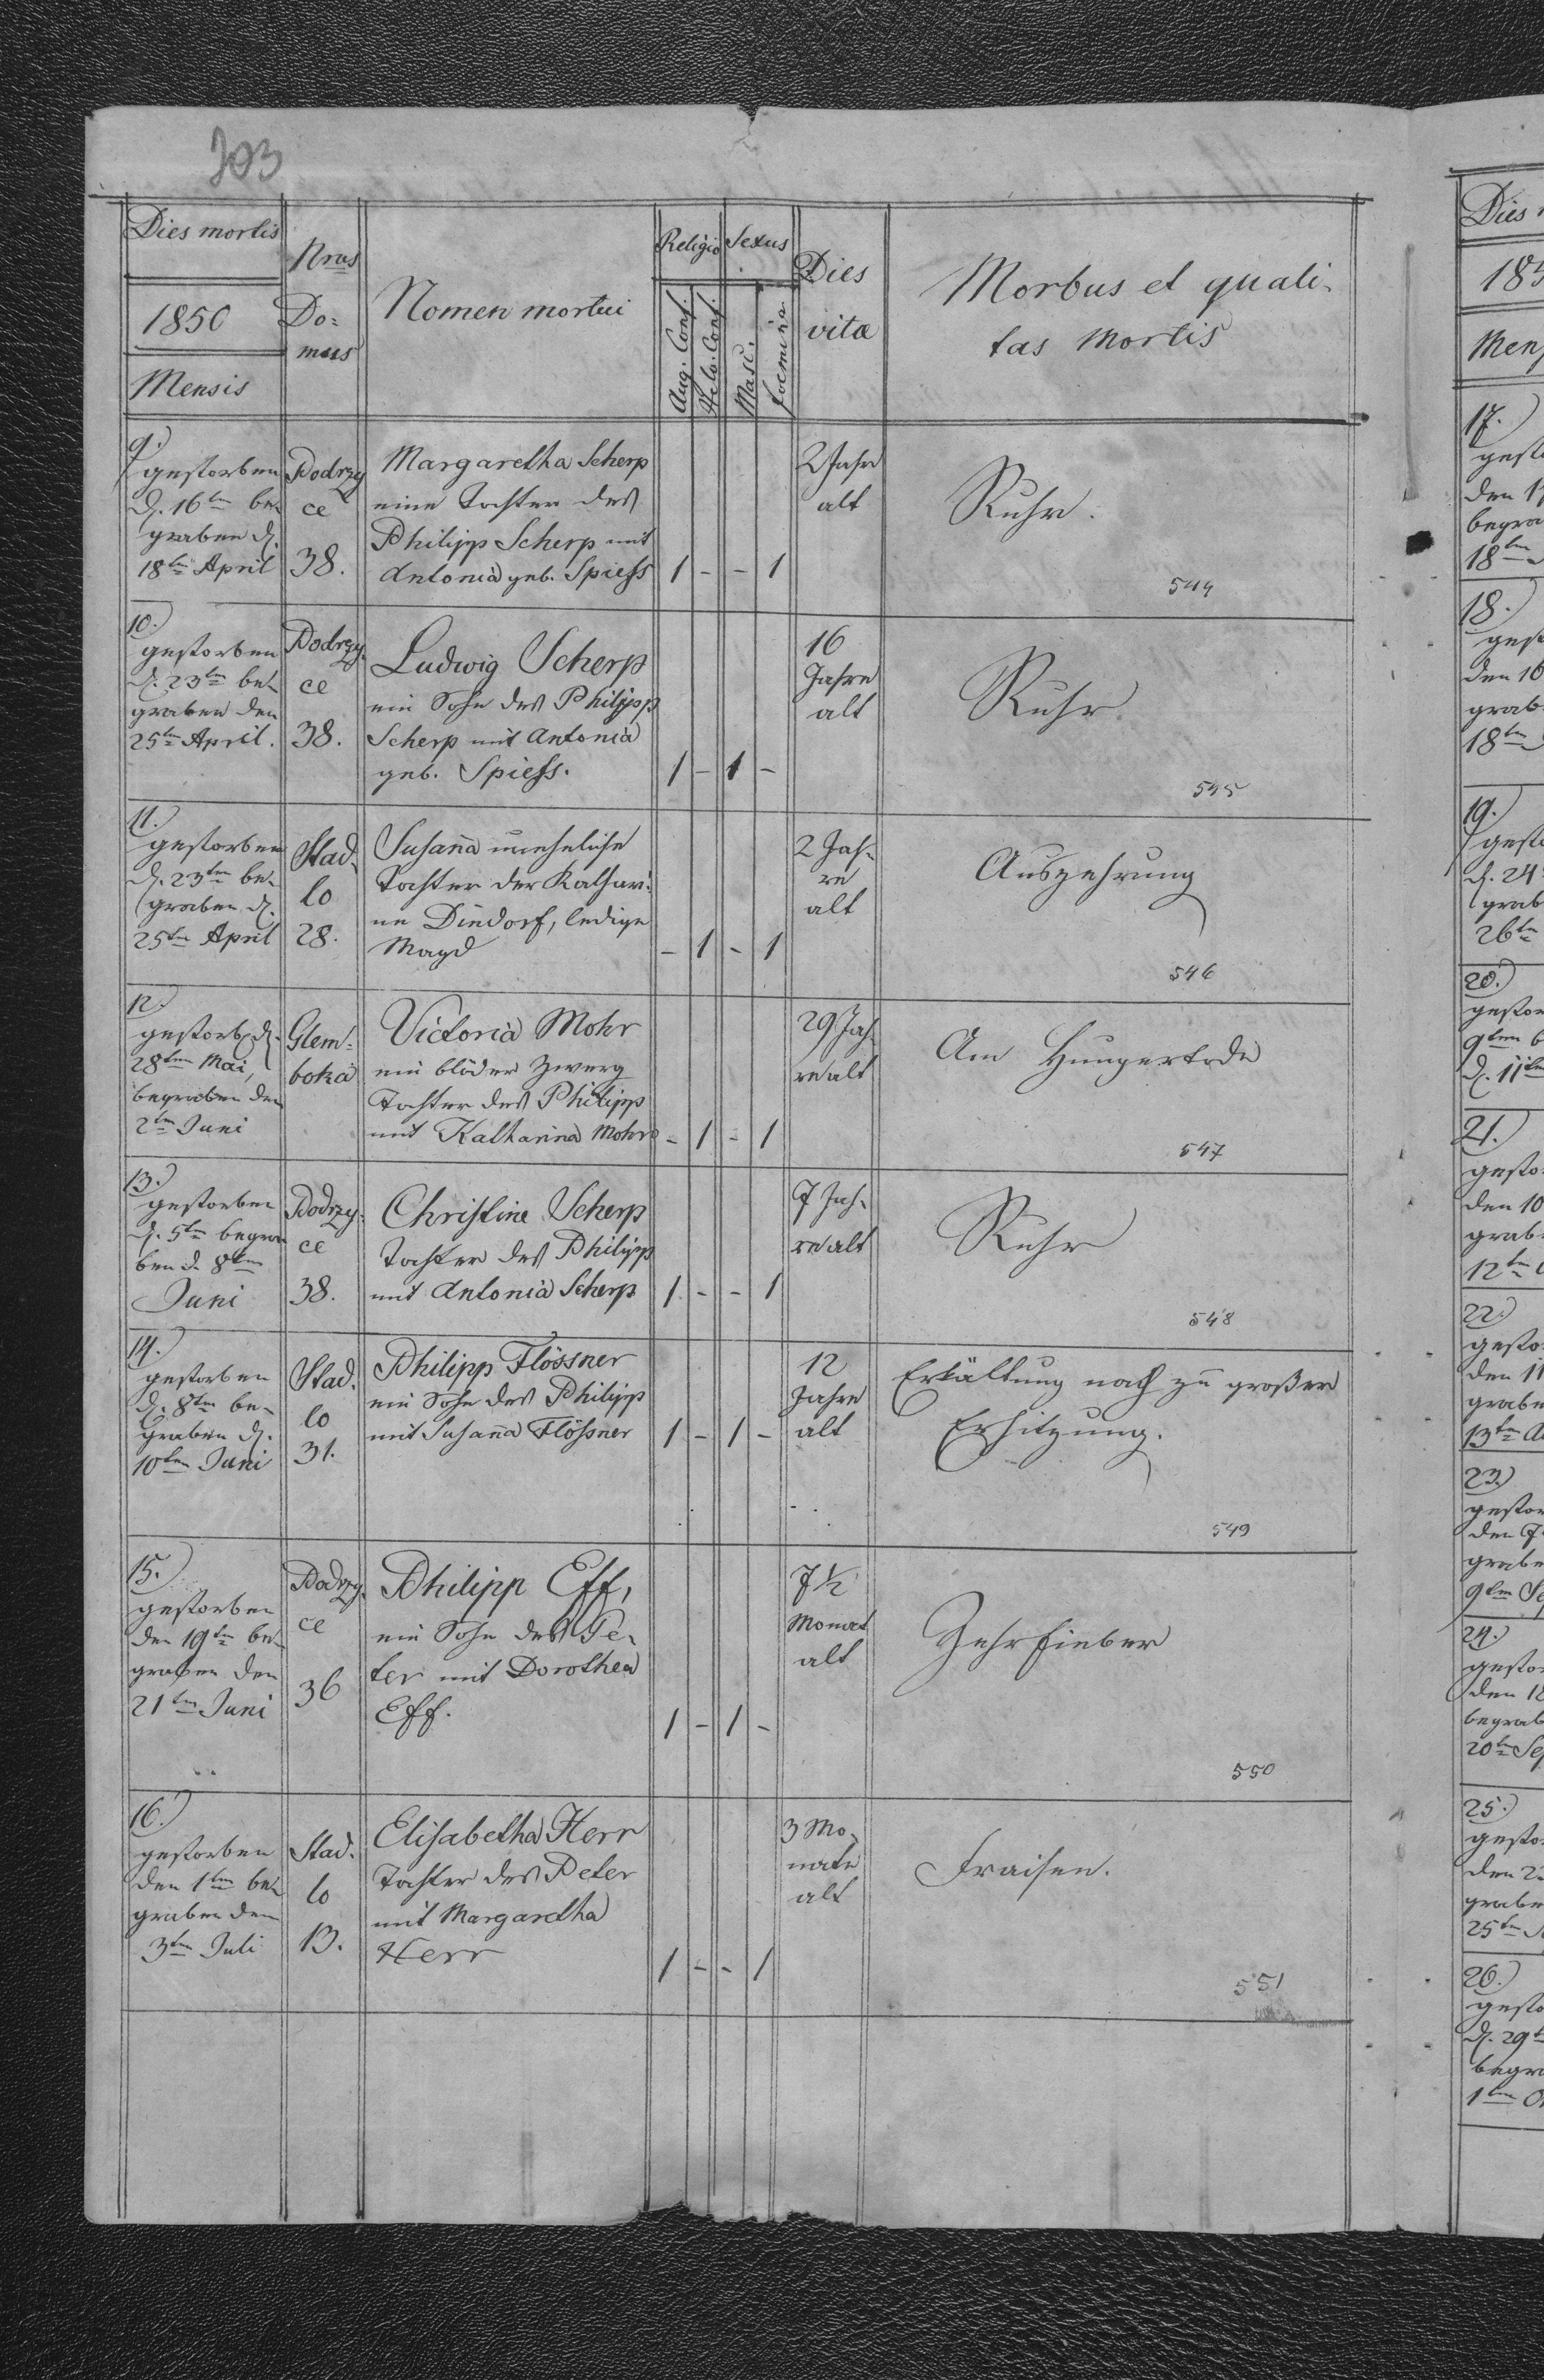 303
Dies mortis
1850
Mensis
Nrus
Do=
mus
Nomen mortui
Religio
Aug. Conf.
Helv. Conf.
Sexus
Masc.
foemina
Dies
vitæ
Morbus et quali-
tas Mortis
9.
gestorben
d. 16ten be-
graben d.
18ten April
Podrzy
ce
38.
Margaretha Scherp
eine Tochter des
Philipp Scherp mit
Antonia geb. Spiess
1 - - 1
2 Jahre
alt
Ruhr.
544
10.
gestorben
d. 23ten be-
graben den
25ten April.
Podrzy-
ce
38.
Ludwig Scherp
ein Sohn des Philipp
Scherp mit Antonia
geb. Spiess.
1 - 1 -
16
Jahre
alt
Ruhr.
545
11.
gestorben
d. 23ten be-
graben d.
25ten April
Stad-
lo
28.
Susaña uneheliche
Tochter der Kathari-
ne Dindorf, ledige
Magd
- 1 - 1
2 Jah-
re
alt
Auszehrung
546
12.
gestorb. d.
28ten Mai,
begraben den
2ten Juni
Glem-
boka
Victoria Mohr
ein blöder Zwerg
Tochter des Philipp
mit Katharina Mohr
- 1 - 1
29 Jah-
re alt
Am Hungertode
547
13.
gestorben
d. 5ten begra-
ben d. 8ten
Juni
Podrzy-
ce
38.
Christine Scherp
Tochter des Philipp
mit Antonia Scherp
1 - - 1
7 Jah-
re alt
Ruhr
548
14.
gestorben
d. 8ten be-
graben d.
10ten Juni
Stad-
lo
31.
Philipp Flössner
ein Sohn des Philipp
mit Susaña Flössner
1 - 1 -
12
Jahre
alt
Erkältung nach zu großer
Erhitzung.
549
15.
gestorben
den 19ten be-
graben den
21ten Juni
Podrzy-
ce
36
Philipp Eff,
ein Sohn des Pe-
ter mit Dorothea
Eff.
1 - 1 -
7 1/2
Monat
alt
Zehrfieber
550
16.
gestorben
den 1ten be-
graben den
3ten Juli
Stad-
lo
13.
Elisabetha Herr
Tochter des Peter
mit Margaretha
Herr
1 - - 1
3 Mo-
nate
alt
Fraisen.
551
Dies
185
Mens
17.
gesto
den 17
begra
18ten
18.
gest
den 16
grab
18ten
19.
gesto
d. 24
grab
26ten
20.
gestor
9ten b
d. 11ten
21.
gesto
den 10
grab
12ten
22.
gesto
den 11
grabe
13ten A
23.
gestor
den 7
grabe
9ten Se
24.
gestor
den 18
begrab
20ten Sep
25.
gesto
den 2
grabe
25ten
26.
gesto
d. 29
begra
1ten O